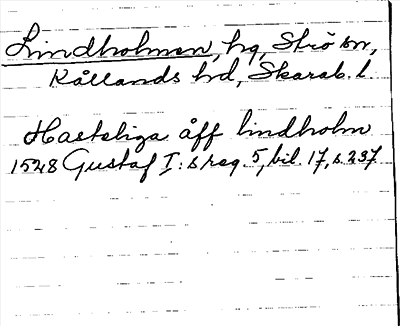 Lindholmen, hg, Strö sn,
Kållands hd, Skarab. l.
Hasteliga åff lindholm
1528 Gustaf I:s reg. 5, bil. 17, s. 237